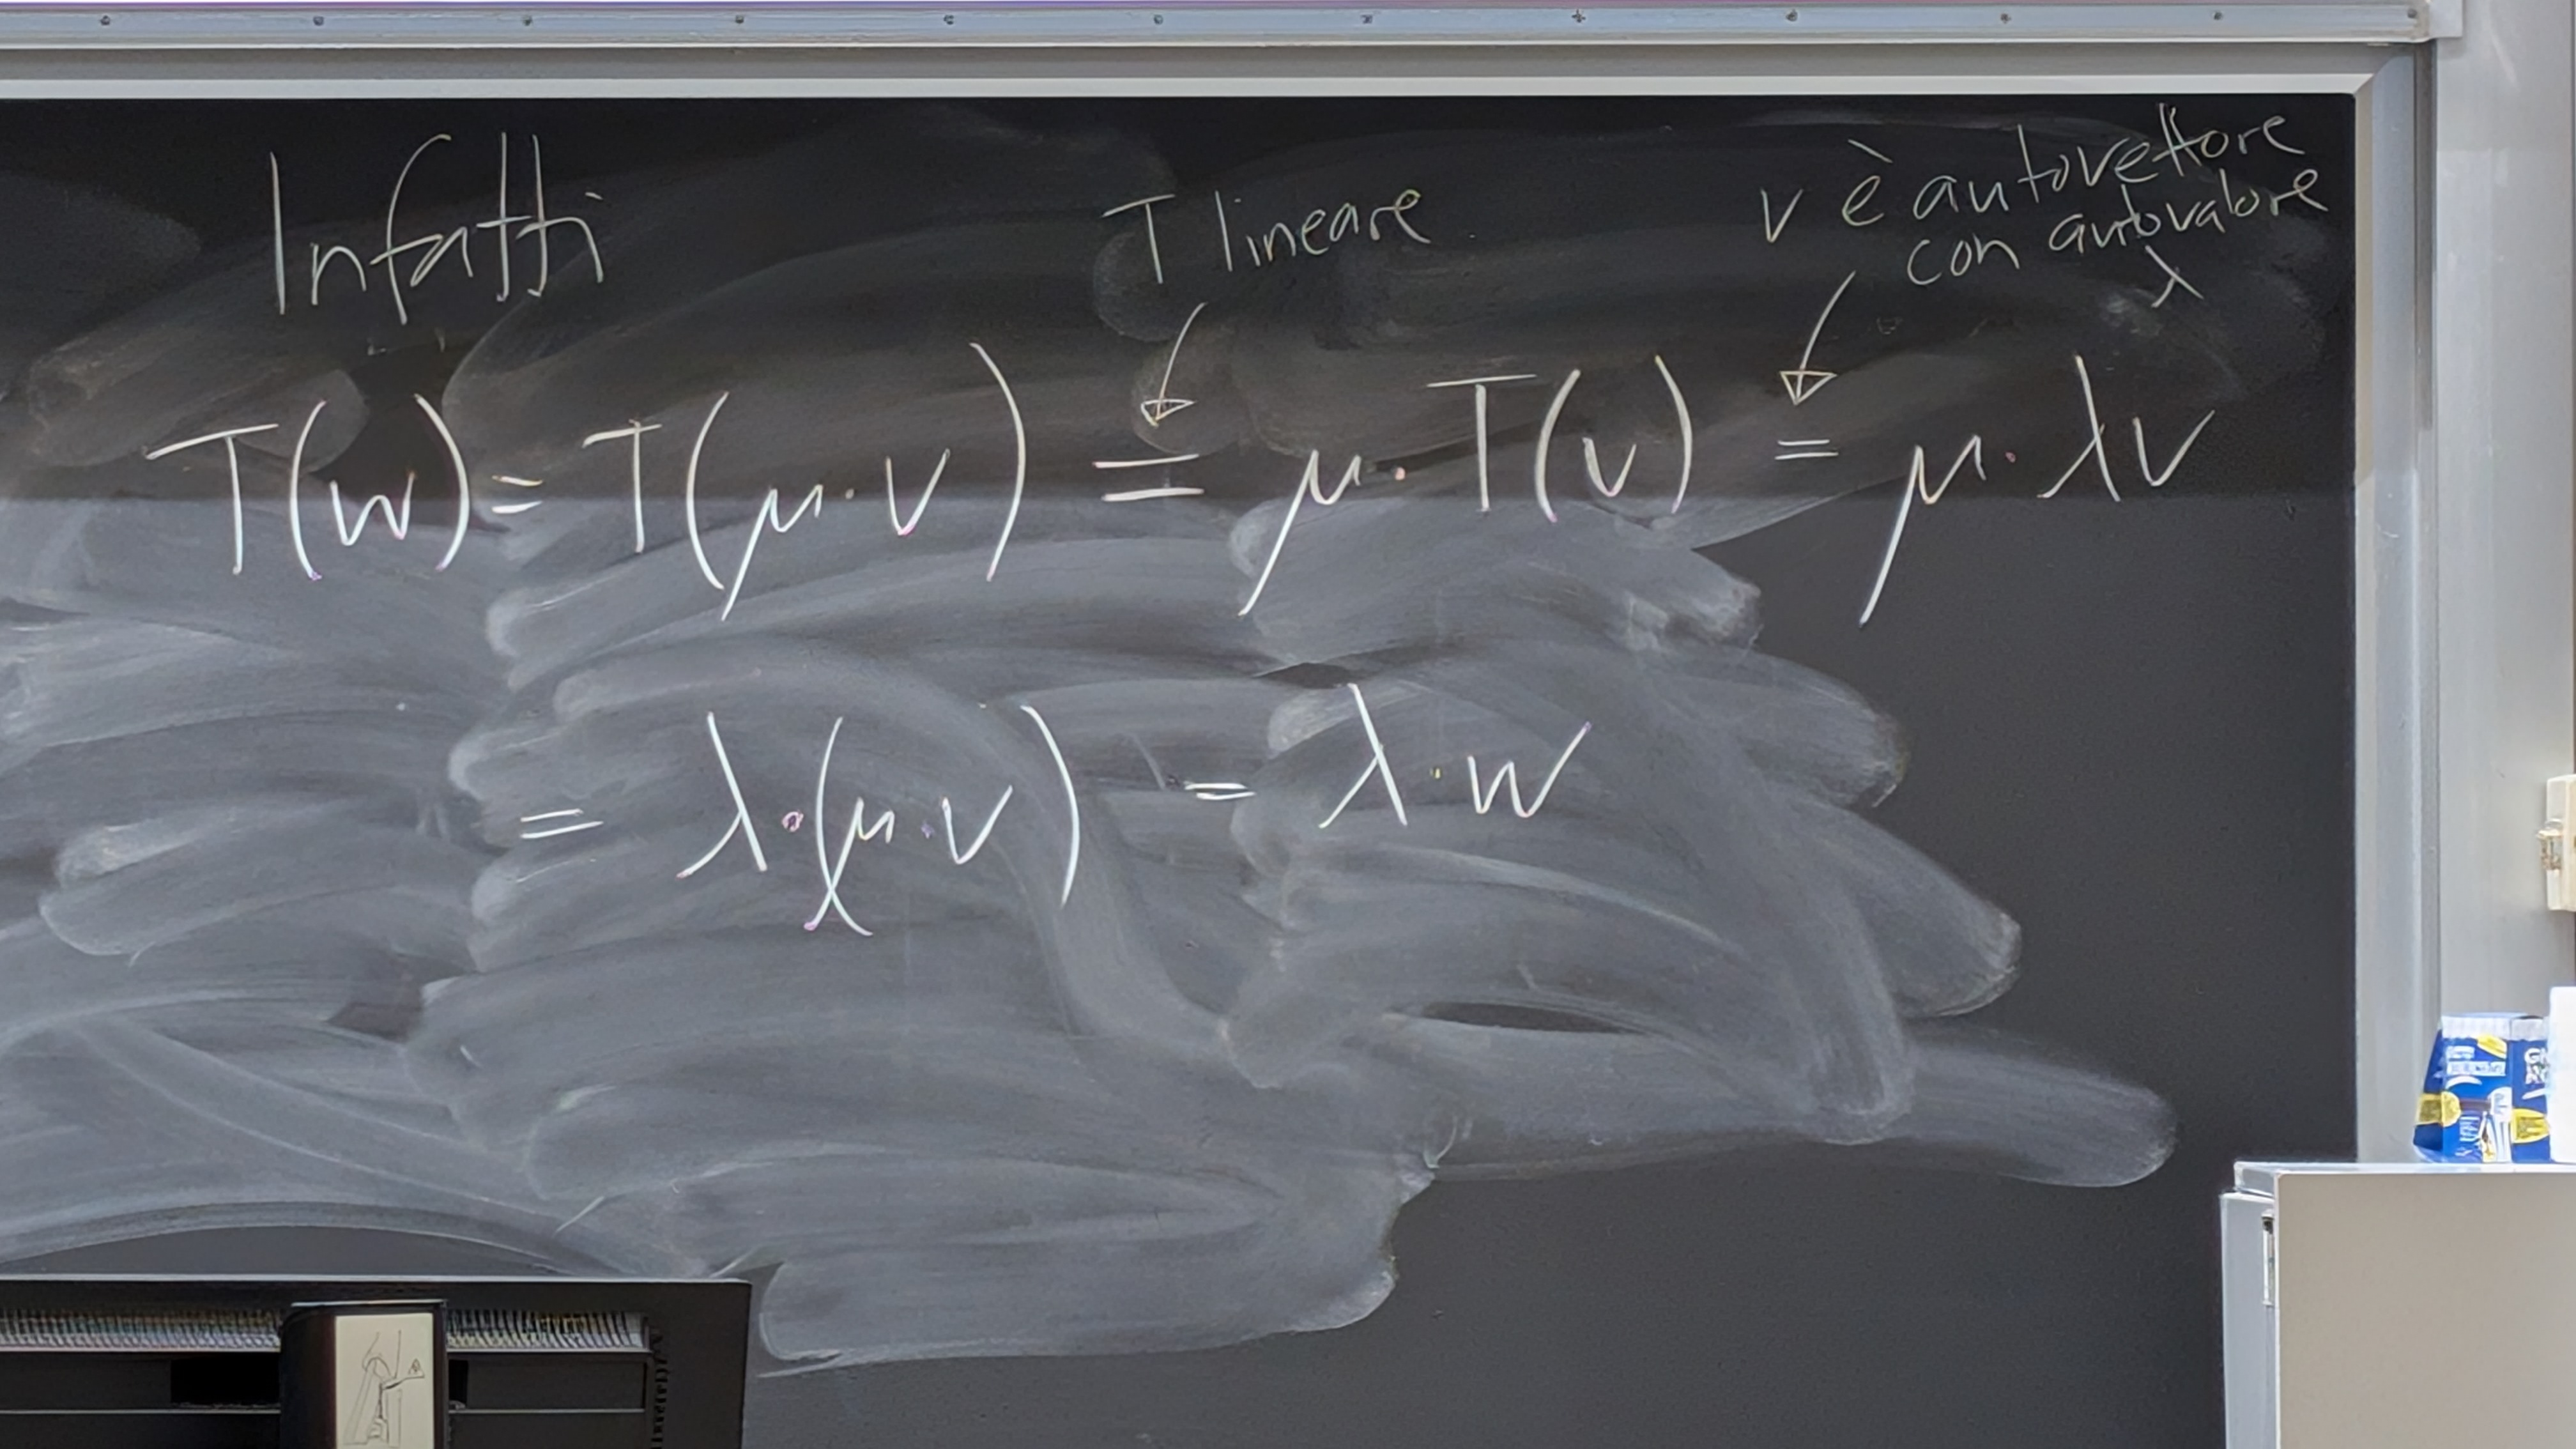 Infatti
T lineare
v è autovettore
con autovalore
λ
T(w) = T(μ·v) = μ·T(v) = μ·λv
= λ·(μ·v) = λ·w